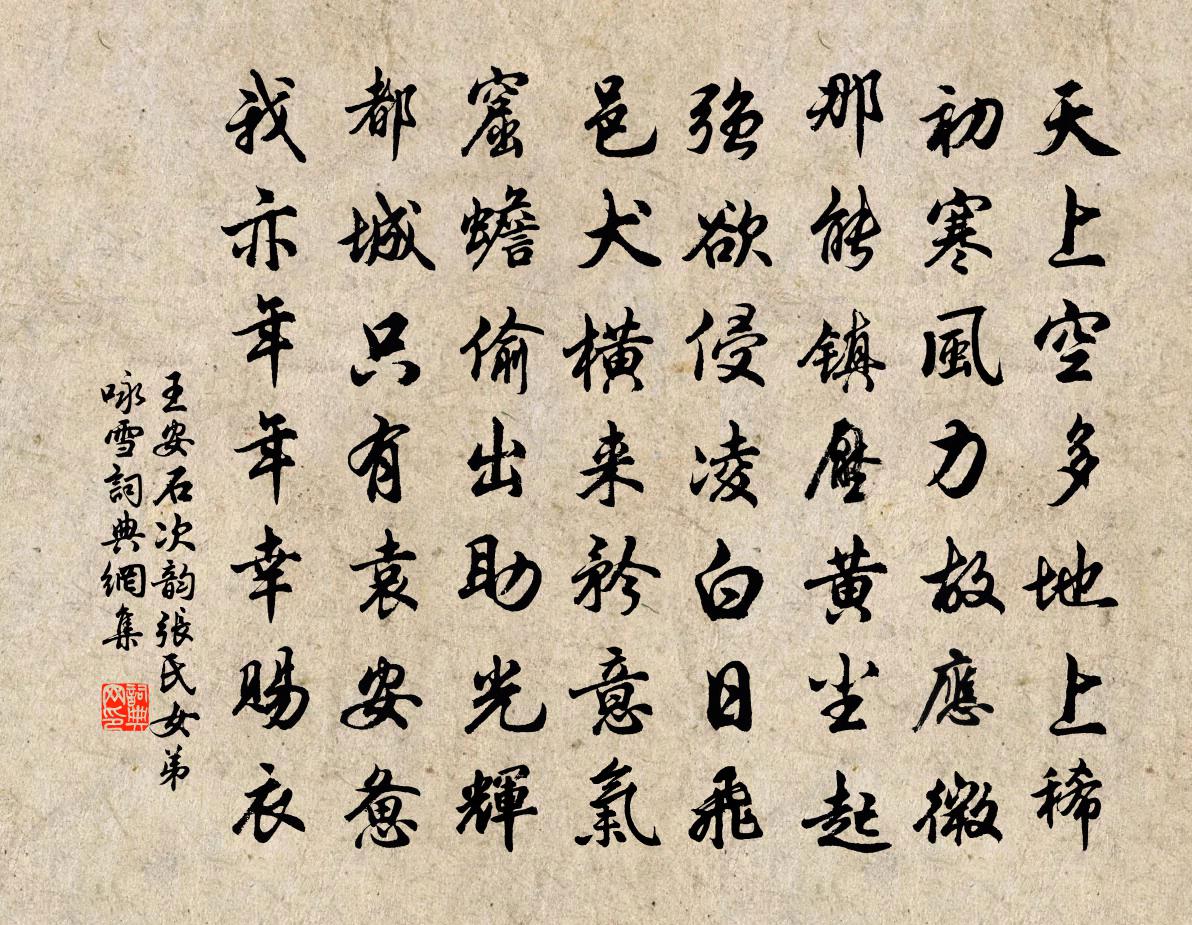 天上空多地上稀
初寒風力故應微
那能镇壓黄尘起
强欲侵凌白日飛
邑犬横来矜意氣
窟蟾偷出助光輝
都城只有袁安惫
我亦年年幸賜衣
王安石次韵張氏女弟
咏雪詞典網集
詞典网印